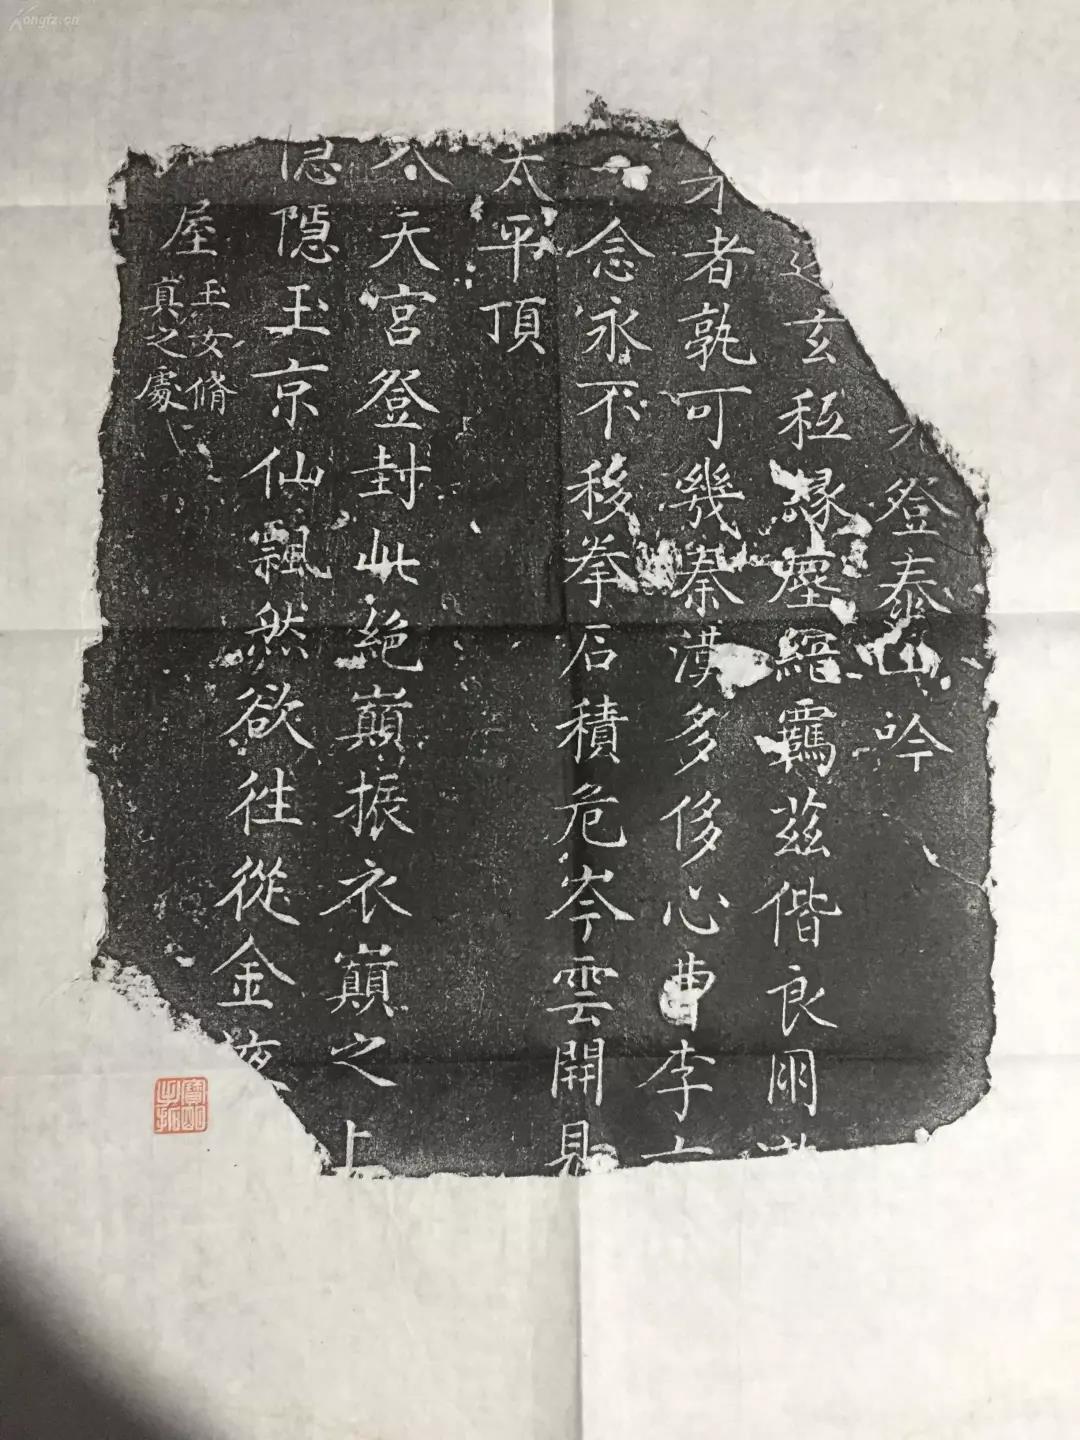 登泰山吟
玄秪緣塵縉羈茲偕良朋
才者孰可幾秦漢多侈心曹李
一念永不移拳石積危岑雲開見
太平頂
天宮登封此絕巔振衣巔之上
隱玉京仙飄然欲往從金液
屋 玉女脩
真之處